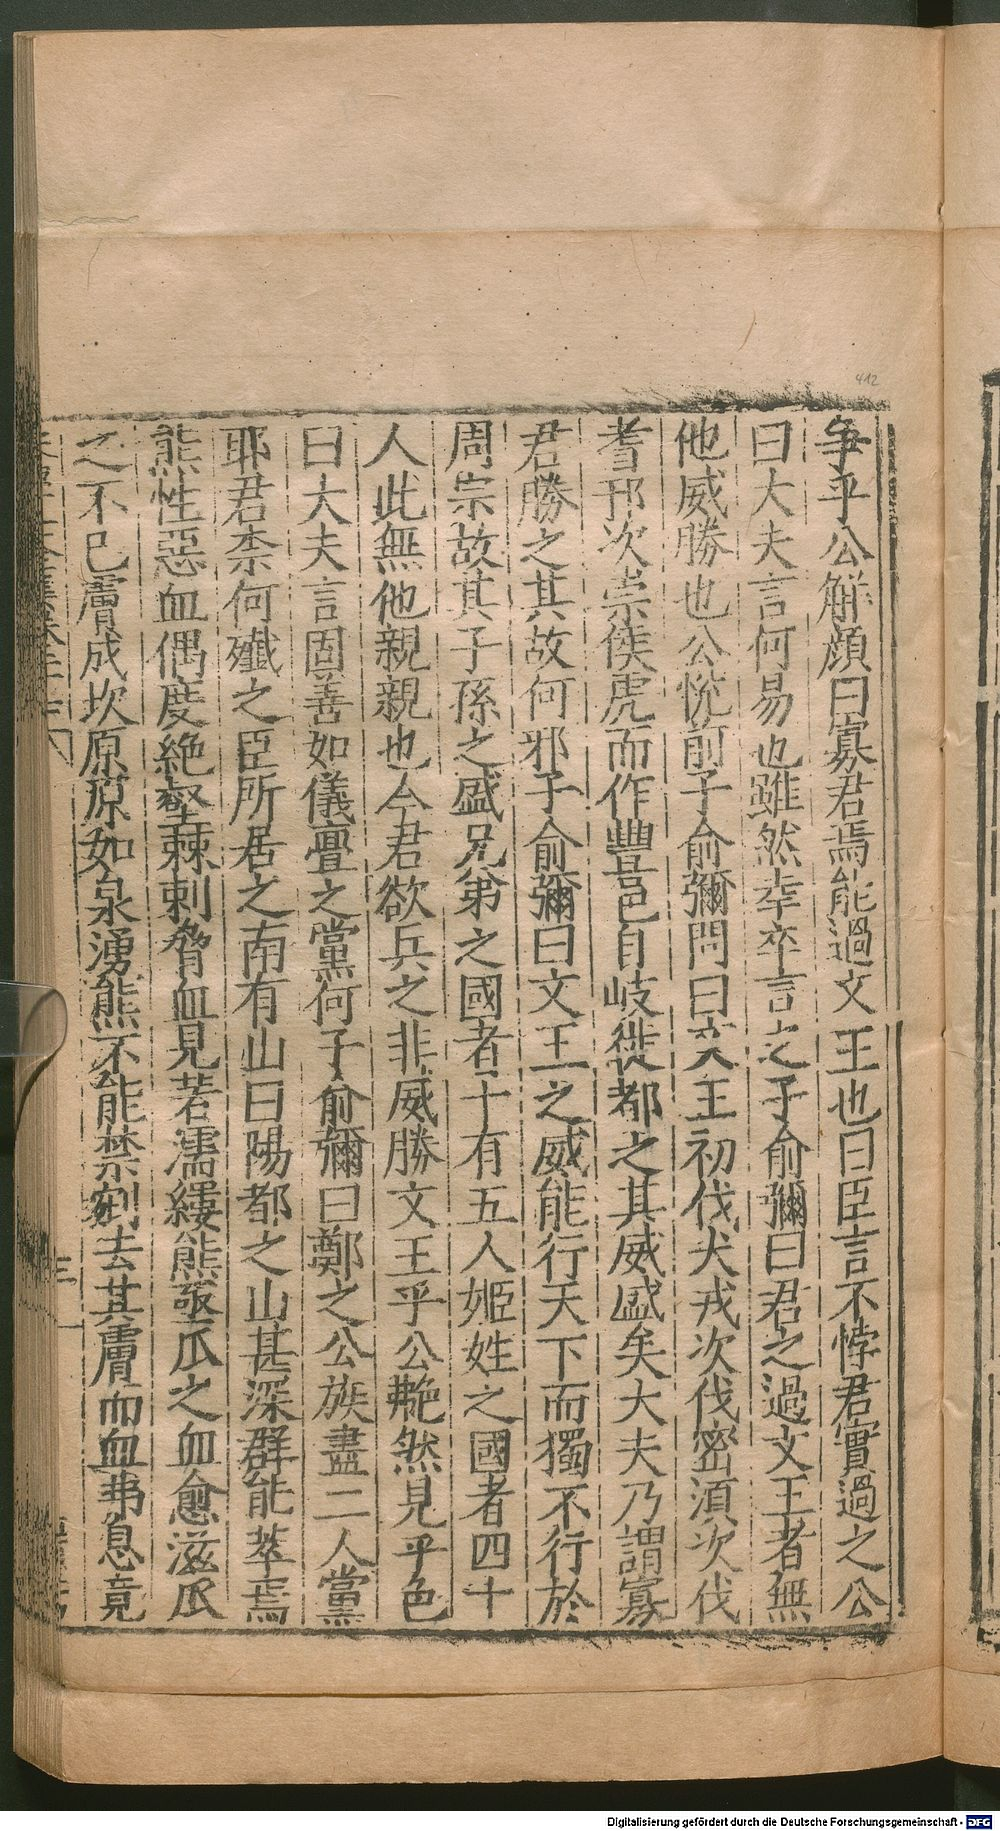 412
争乎公解顔曰寡君焉能過文王也曰臣言不悖君實過之公
曰大夫言何易也雖然幸卒言之子俞彌曰君之過文王者無
他威勝也公恱前子俞彌問曰文王初伐犬戎次伐密湏次伐
耆邗次崇侯虎而作豐邑自岐徙都之其威盛矣大夫乃謂寡
君勝之其故何邪子俞彌曰文王之威能行天下而獨不行於
周宗故其子孫之盛兄弟之國者十有五人姬姓之國者四十
人此無他親親也今君欲兵之非威勝文王乎公艴然見乎色
曰大夫言固善如儀亶之黨何子俞彌曰鄭之公族盡二人黨
耶君柰何殲之臣所居之南有山曰陽都之山甚深群能萃焉
熊性惡血偶度絶壑棘刺脅血見若濡縷熊亟爪之血愈滋爪
之不已膚成坎原原如泉湧熊不能禁剜去其膚而血弗息竟
Digitalisierung gefördert durch die Deutsche Forschungsgemeinschaft - DFG